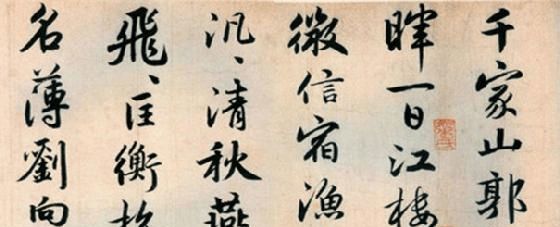 千家山郭
暉一日江樓
微信宿漁
汎〻清秋燕
飛〻匡衡
名薄劉向